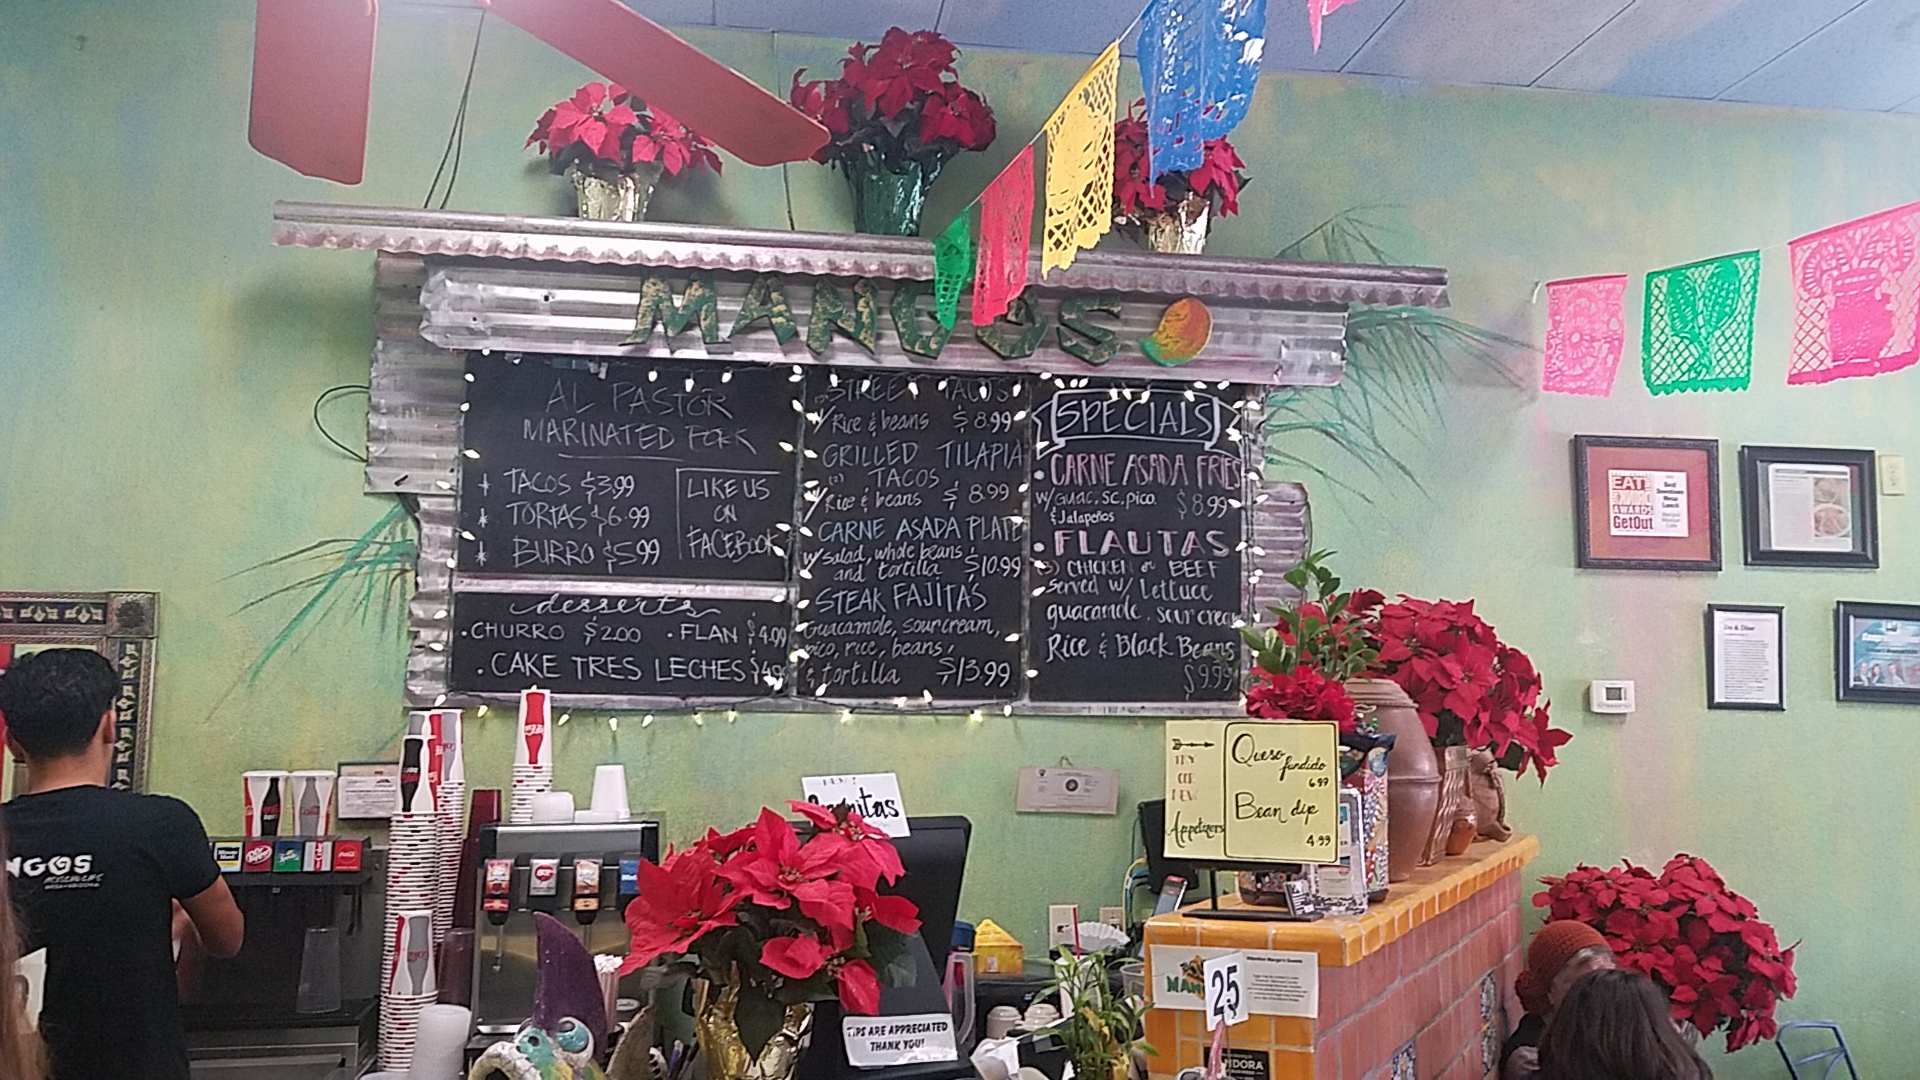 MANGOS
AL PASTOR
MARINATED PORK
TACOS $3.99
TORTAS $6.99
BURRO $5.99
LIKE US
ON
FACEBOOK
desserts
• CHURRO $2.00 • FLAN $4.09
• CAKE TRES LECHES
STREET TACOS
w/ Rice & beans $8.99
GRILLED TILAPIA
(2) TACOS
w/ Rice & beans $8.99
CARNE ASADA PLATE
w/ Salad, whole beans
and tortilla $10.99
STEAK FAJITAS
Guacamole, sour cream,
pico, rice, beans,
& tortilla $13.99
SPECIALS
• CARNE ASADA FRIES
w/ Guac, SC, pico, $8.99
& Jalapeños
• FLAUTAS
(3) CHICKEN or BEEF
Served w/ Lettuce
guacamole, sour cream
Rice & Black Beans
$9.99
TRY
OUR
NEW
Appetizers
Queso
fundido
6.99
Bean dip
4.99
EAT
AWARDS
GetOut
Best
Downtown
Mesa
Lunch
NGOS
TIPS ARE APPRECIATED
THANK YOU!
25
Dr Pepper